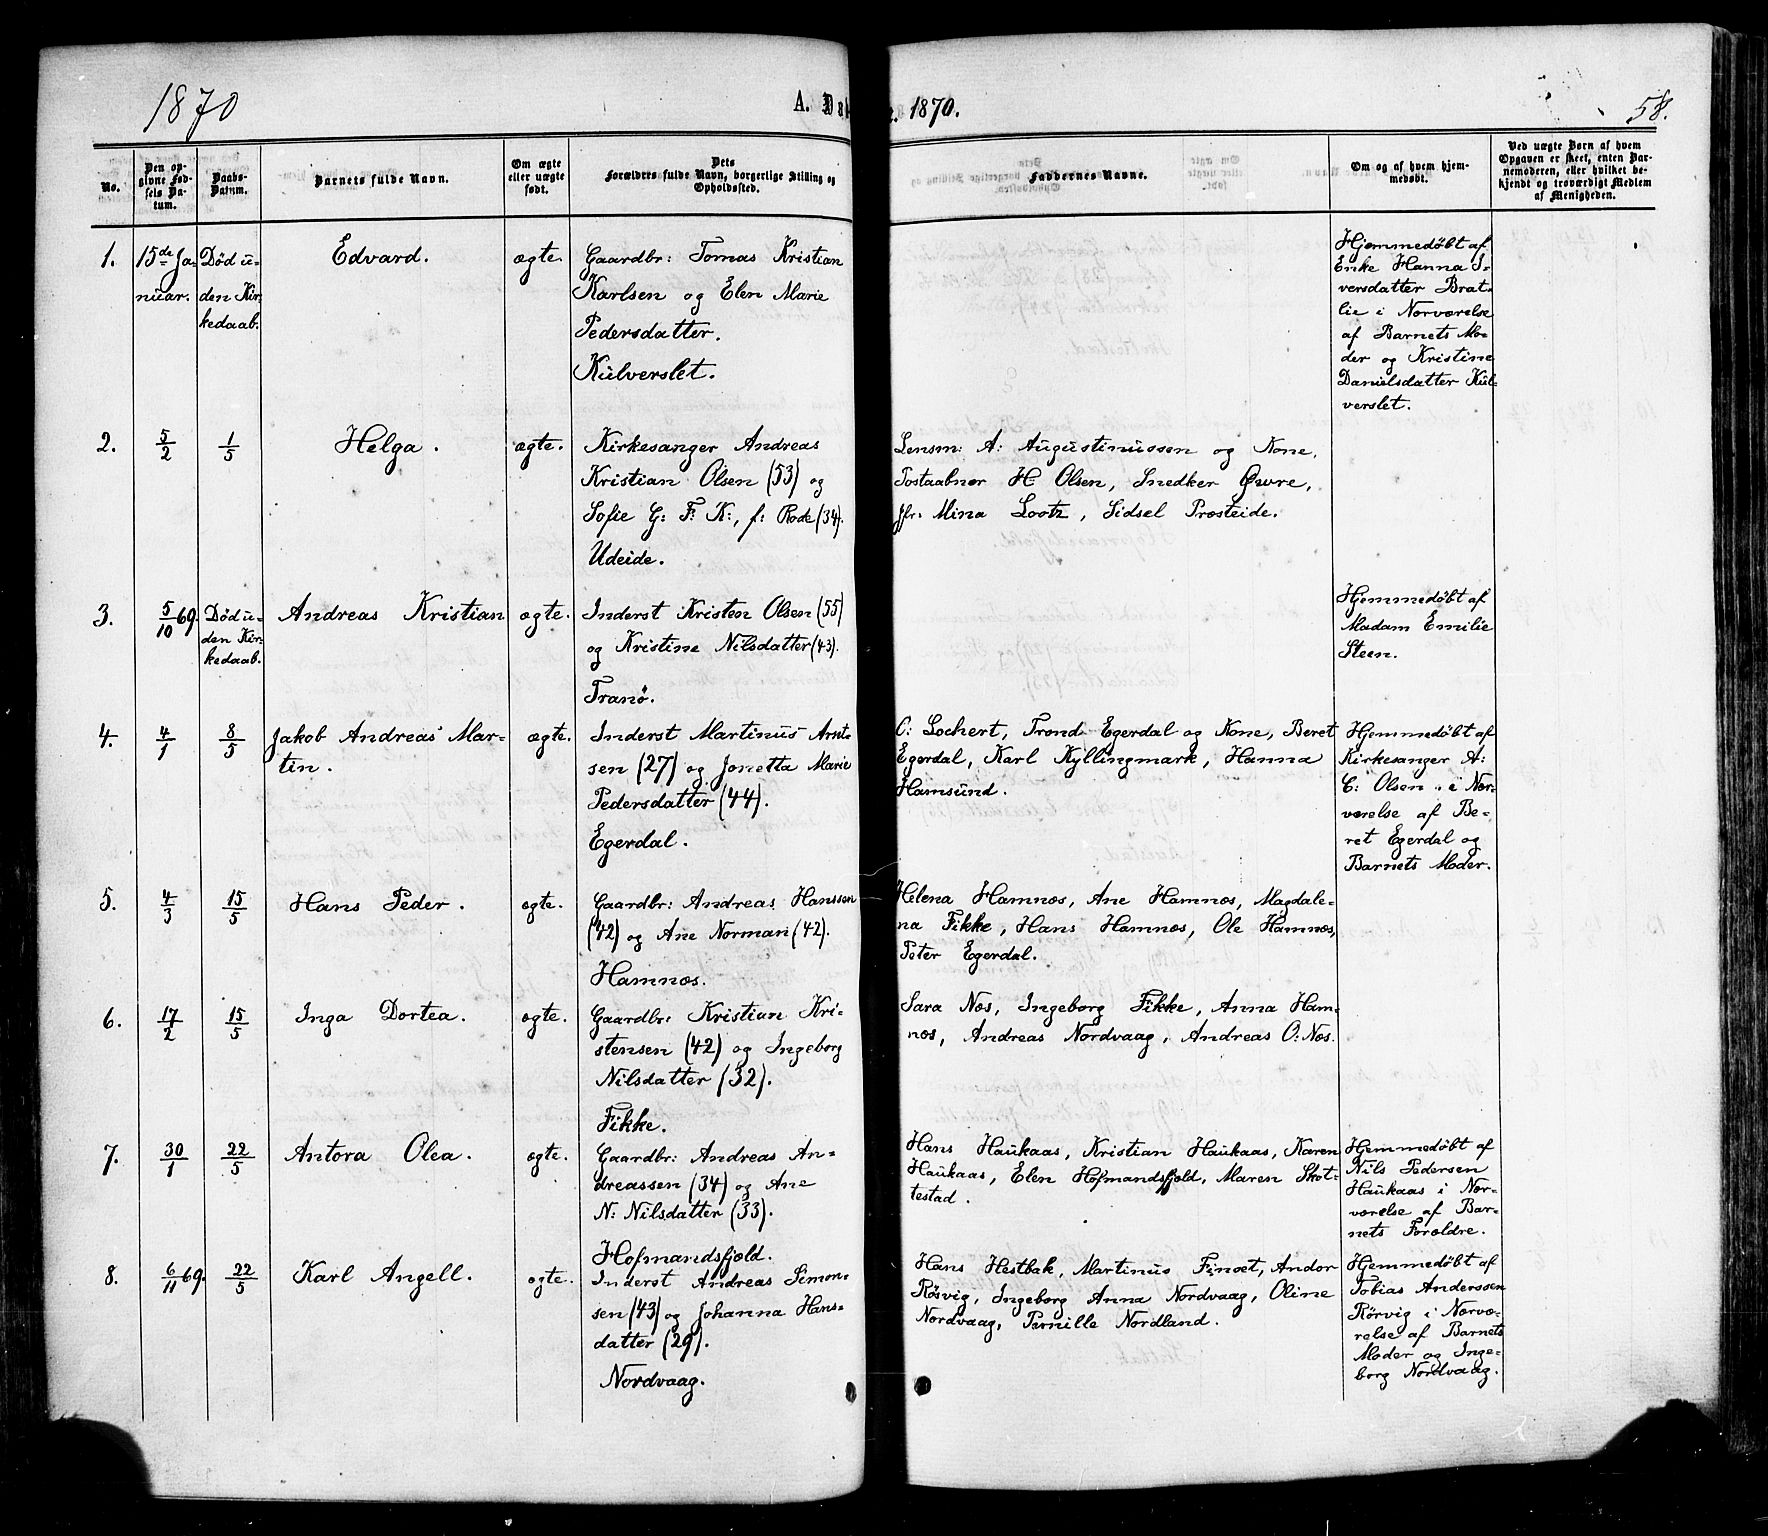 1870
A. Dø
e. 1870.
58.
No.
Den op-
givne Fød-
sels Da-
tum.
Daabs-
Datum.
Barnets fulde Navn.
Om ægte
eller uægte
født.
Dets
Forældres fulde Navn, borgerlige Stilling og
Opholdssted.
Faddernes Navne.
Om og af hvem hjem-
medøbt.
Ved uægte Børn af hvem
Opgaven er skeet, enten Bar-
nemoderen, eller hvilket be-
kjendt og troværdigt Medlem
af Menigheden.
1.
15de Ja-
nuar.
Død u-
den Kir-
kedaab.
Edvard.
ægte.
Gaardbr: Tomas Kristian
Karlsen og Elen Marie
Pedersdatter.
Kulverslet.
Hjemmedøbt af
Enke Hanna I-
versdatter Brat-
lie i Nærværelse
af Barnets Mo-
der og Kristine
Danielsdatter Kul-
verslet.
2.
5/2
1/5
Helga.
ægte.
Kirkesanger Andreas
Kristian Olsen (53) og
Sofie G: F: K:, f: Rode (34).
Udeide.
Lensm: A: Augustinussen og Kone,
Postaabner H Olsen, Snedker Øvre,
jfr: Mina Lootz, Sidsel Præsteide.
3.
5/10 69.
Død u-
den Kir-
kedaab.
Andreas Kristian
ægte.
Inderst Kristen Olsen (55)
og Kristine Nilsdatter (43).
Tranø.
Hjemmedøbt af
Madam Emilie
Steen.
4.
4/1
8/5
Jakob Andreas Mar-
tin.
ægte.
Inderst Martinus Arnt-
sen (27) og Jonetta Marie
Pedersdatter (44).
Egerdal.
C: Lochert, Trond Egerdal og Kone, Beret
Egerdal, Karl Kyllingmark, Hanna
Hamsund.
Hjemmedøbt af
Kirkesanger A:
C: Olsen i Nær-
værelse af Be-
ret Egerdal og
Barnets Moder.
5.
4/3
15/5
Hans Peder.
ægte.
Gaardbr: Andreas Hanssen
(42) og Ane Norman (42).
Hamnæs.
Helena Hamnæs, Ane Hamnæs, Magdale-
na Fikke, Hans Hamnæs, Ole Hamnæs,
Peter Egerdal.
6.
17/2
15/5
Inga Dortea.
ægte.
Gaardbr: Kristian Kri-
stensen (42) og Ingeborg
Nilsdatter (32).
Fikke.
Sara Næs, Ingeborg Fikke, Anna Ham-
næs, Andreas Nordvaag, Andreas O: Næs.
7.
30/1
22/5
Antora Olea.
ægte.
Gaardbr: Andreas An-
dreassen (34) og Ane
N: Nilsdatter (33).
Hofmandsfjæld.
Hans Haukaas, Kristian Haukaas, Karen
Haukaas, Elen Hofmandsfjæld, Maren Skot-
testad.
Hjemmedøbt af
Nils Pedersen
Haukaas i Nær-
værelse af Bar-
nets Forældre.
8.
6/11 69.
22/5
Karl Angell.
ægte.
Inderst Andreas Simon-
sen (43) og Johanna Hans-
datter (29).
Nordvaag.
Hans Hestbak, Martinus Finset, Andor
Røsvig, Ingeborg Anna Nordvaag, Oline
Nordvaag, Pernille Nordland.
Hjemmedøbt af
Tobias Anderssen
Rørvig i Nærvæ-
relse af Barnets
Moder og Inge-
borg Nordvaag.